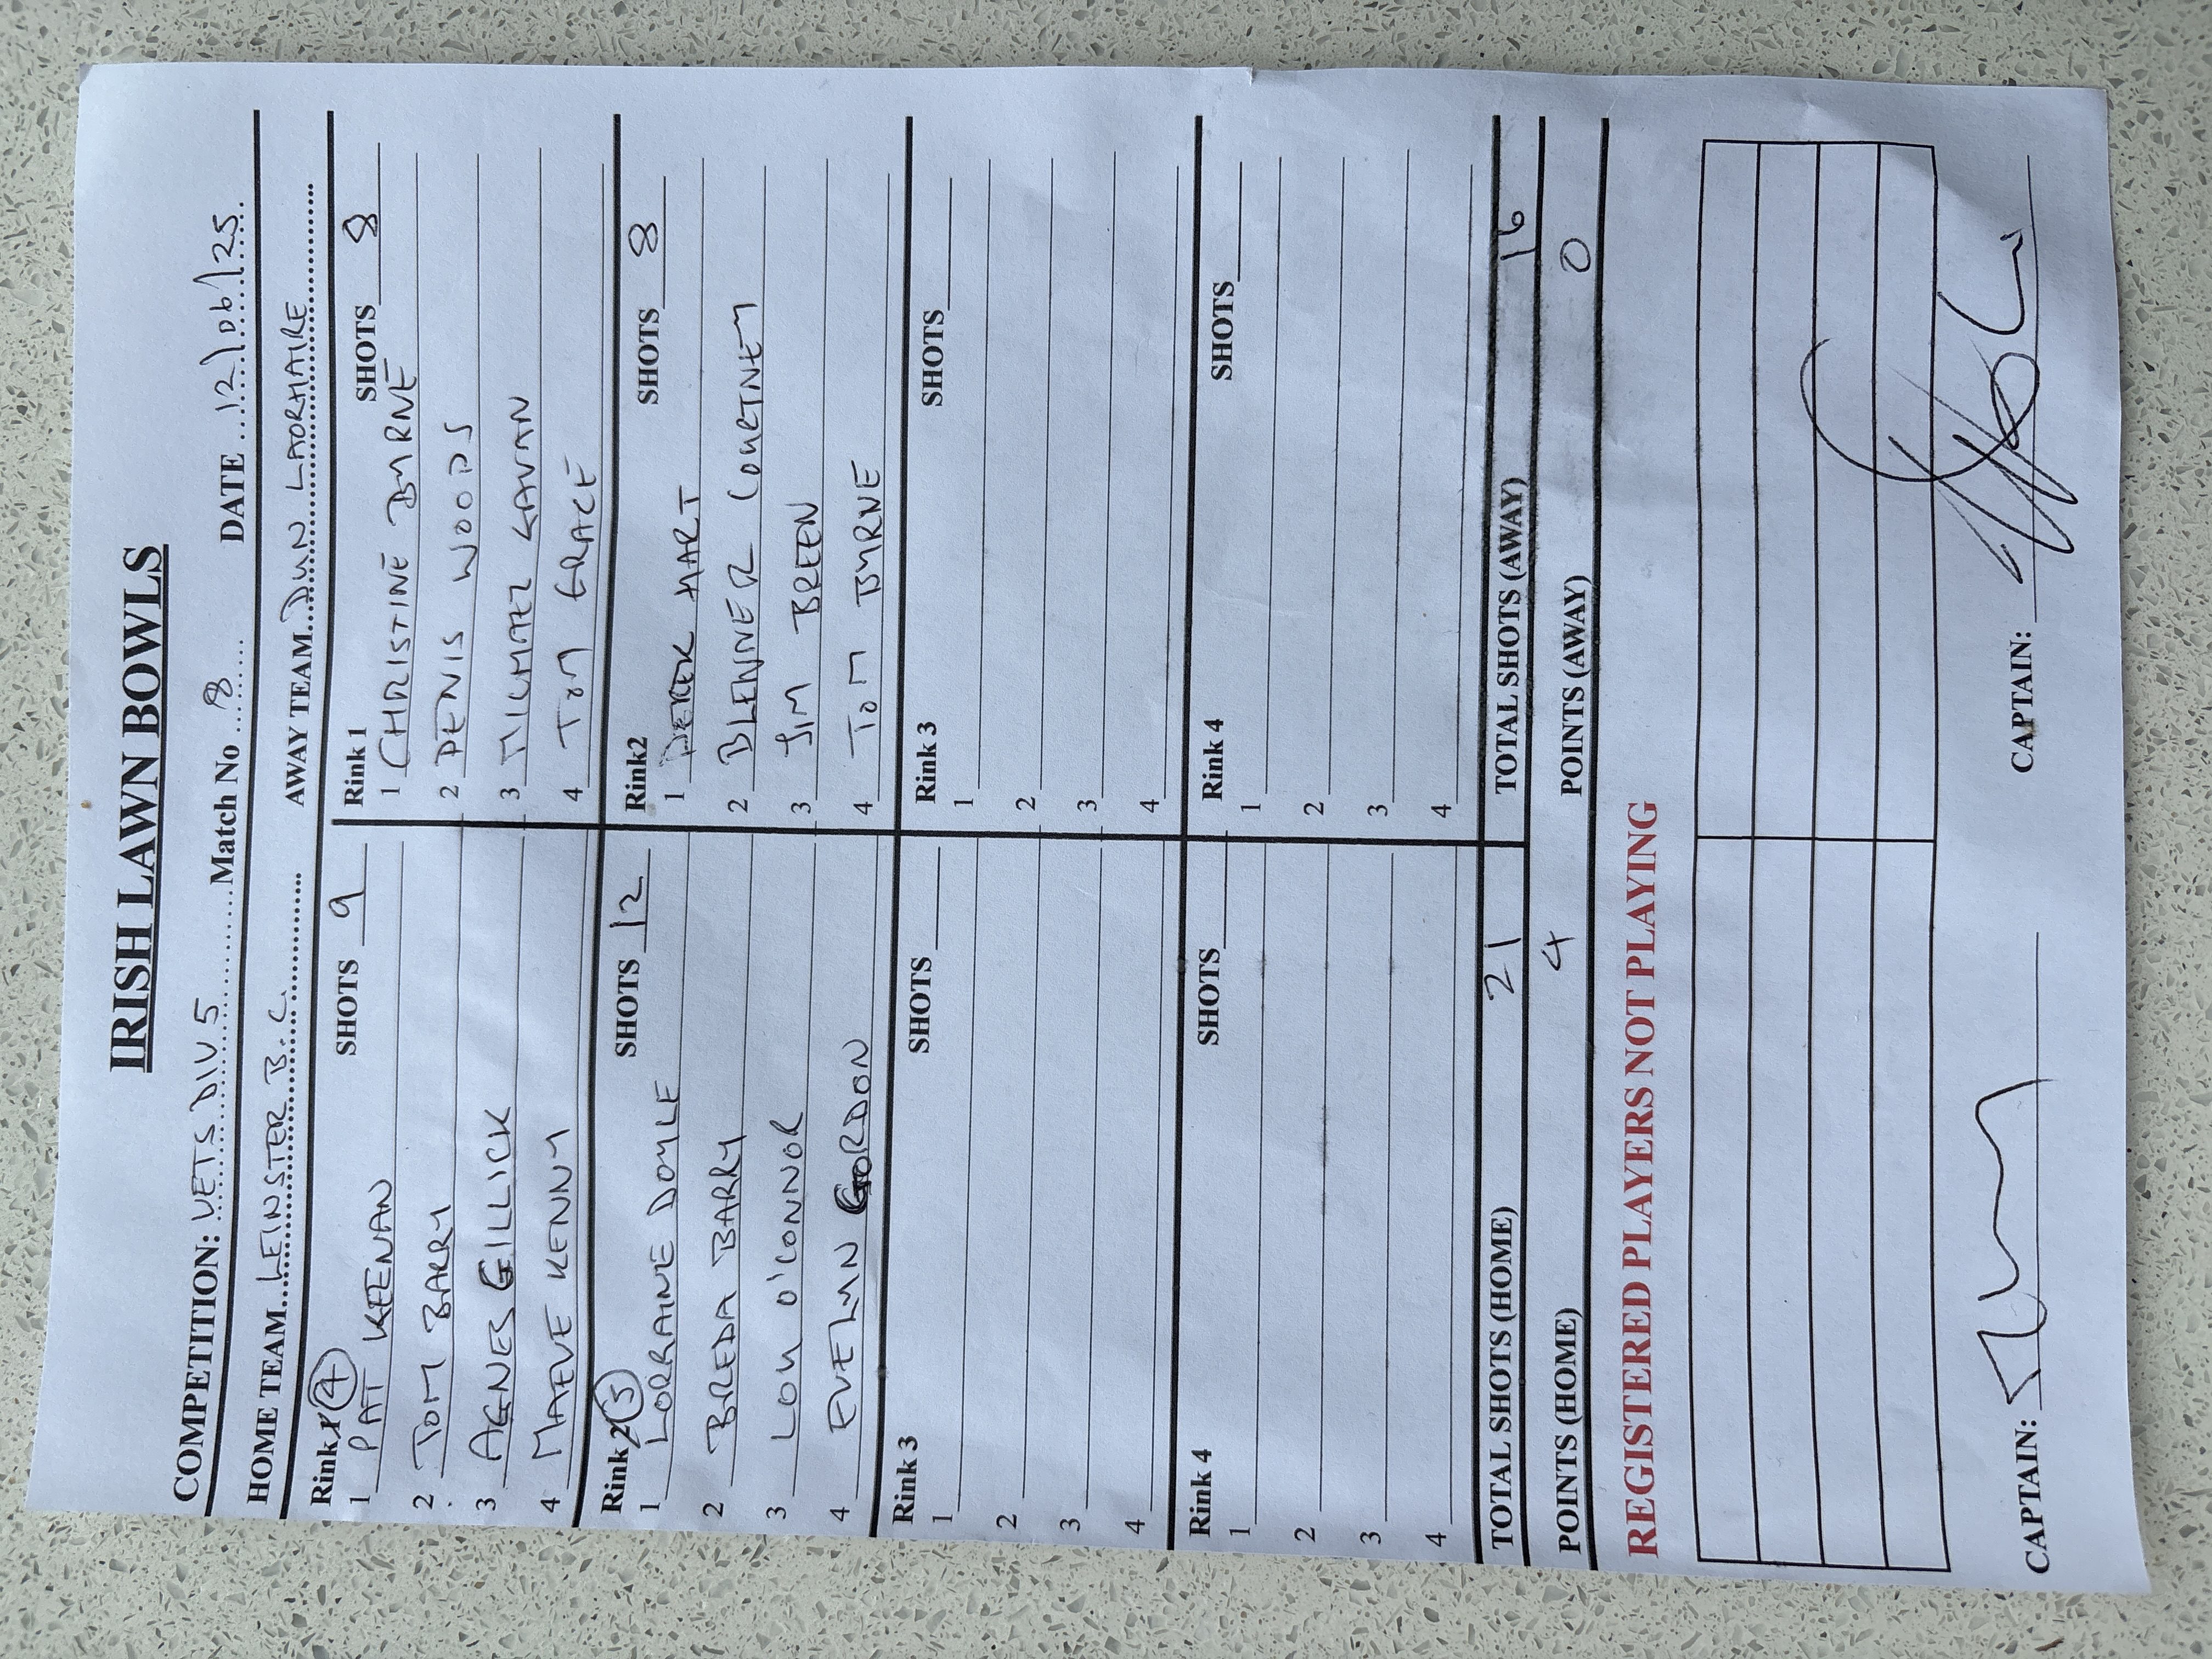 IRISH LAWN BOWLS
COMPETITION: VETS DIV 5 Match No 8 DATE 12/06/25
HOME TEAM LEINSTER B.C. AWAY TEAM DUN LAORHAIRE
Rink 1 4 SHOTS 9
1 PAT KEENAN
2 TOM BARRY
3 AGNES GILLICK
4 MAEVE KENNY
Rink 1 SHOTS 8
1 CHRISTINE BYRNE
2 DENIS WOODS
3 MICHAEL KAVAN
4 TOM GRACE
Rink 2 5 SHOTS 12
1 LORRAINE DOYLE
2 BREDA BARRY
3 LOU O'CONNOR
4 EVELYN GORDON
Rink2 SHOTS 8
1 DEREK HART
2 BLENNER COURTNEY
3 JIM BREEN
4 TOM BYRNE
Rink 3 SHOTS
1
2
3
4
Rink 3 SHOTS
1
2
3
4
Rink 4 SHOTS
1
2
3
4
Rink 4 SHOTS
1
2
3
4
TOTAL SHOTS (HOME) 21 TOTAL SHOTS (AWAY) 16
POINTS (HOME) 4 POINTS (AWAY) 0
REGISTERED PLAYERS NOT PLAYING
CAPTAIN: CAPTAIN: